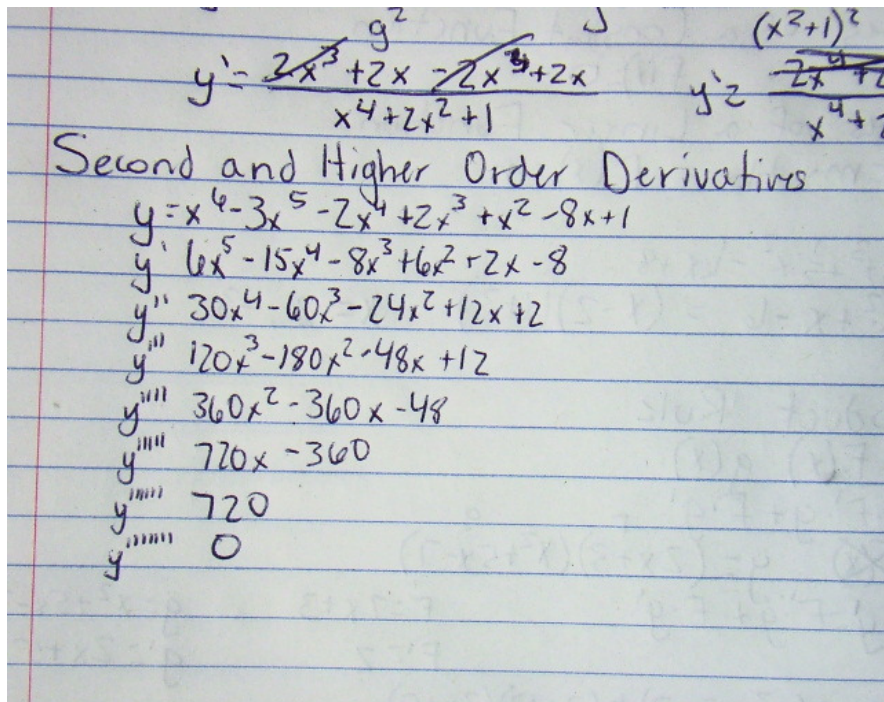 g² (x²+1)²
y' = 2x³ + 2x - 2x³ + 2x y' = -2x⁴ + 2
x⁴ + 2x² + 1 x⁴ + 2
Second and Higher Order Derivatives
y = x⁶ - 3x⁵ - 2x⁴ + 2x³ + x² - 8x + 1
y' 6x⁵ - 15x⁴ - 8x³ + 6x² + 2x - 8
y'' 30x⁴ - 60x³ - 24x² + 12x + 2
y''' 120x³ - 180x² - 48x + 12
y'''' 360x² - 360x - 48
y''''' 720x - 360
y'''''' 720
y''''''' 0